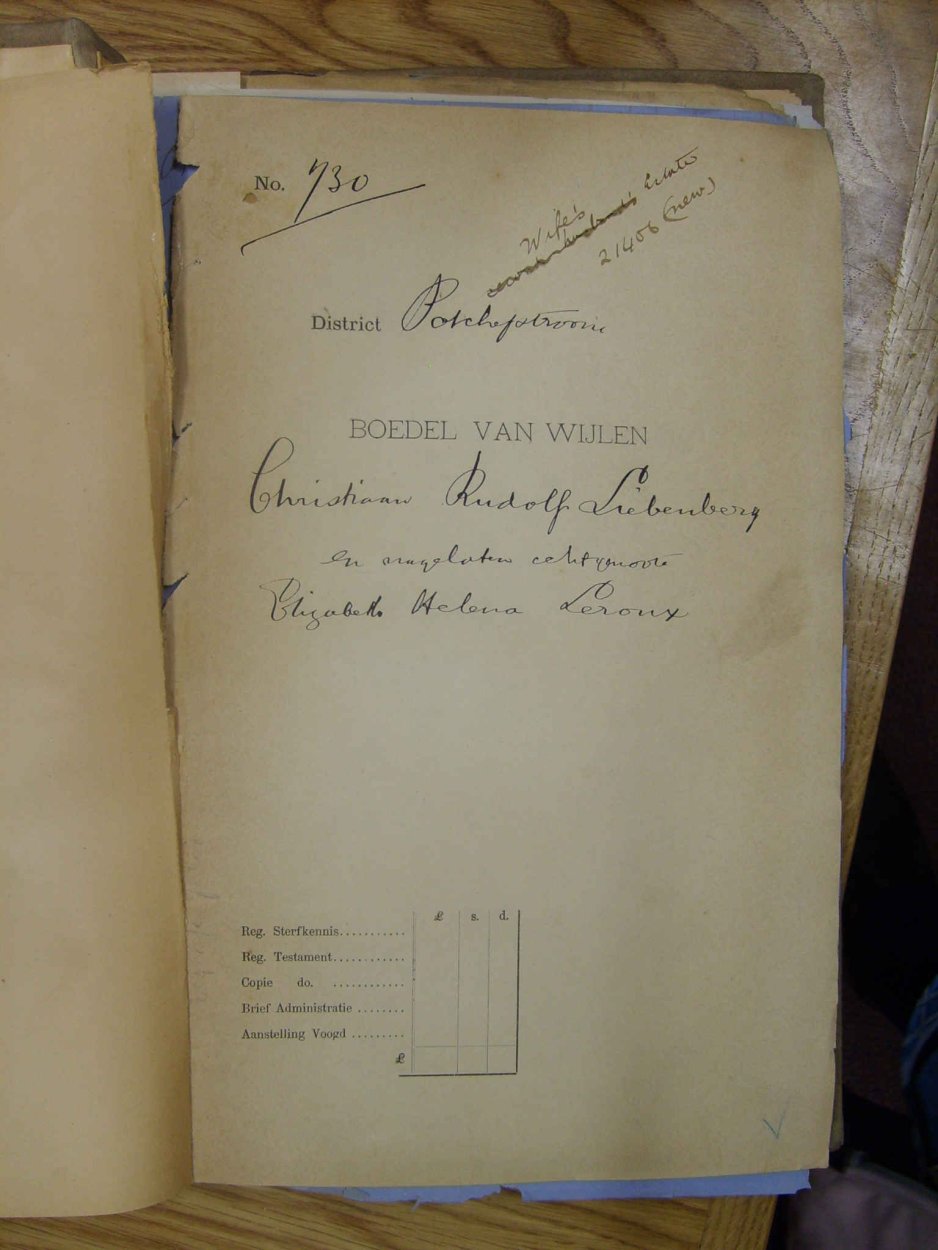 No. 730
Wife's Estate
21406 (new)
District Potchefstroom
BOEDEL VAN WIJLEN
Christiaan Rudolf Liebenberg
en nagelaten echtgenoote
Elizabeth Helena Leroux
£ s. d.
Reg. Sterfkennis...........
Reg. Testament............
Copie do. ............
Brief Administratie ........
Aanstelling Voogd .........
£